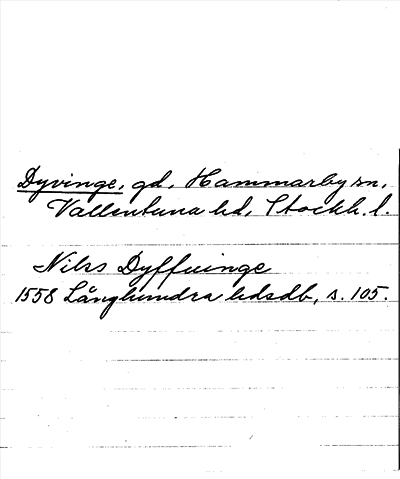 Dyvinge, gd, Hammarby sn,
Vallentuna hd, Stockh. l.
Nilss Dyffuinge
1558 Långhundra hdsdb, s. 105.